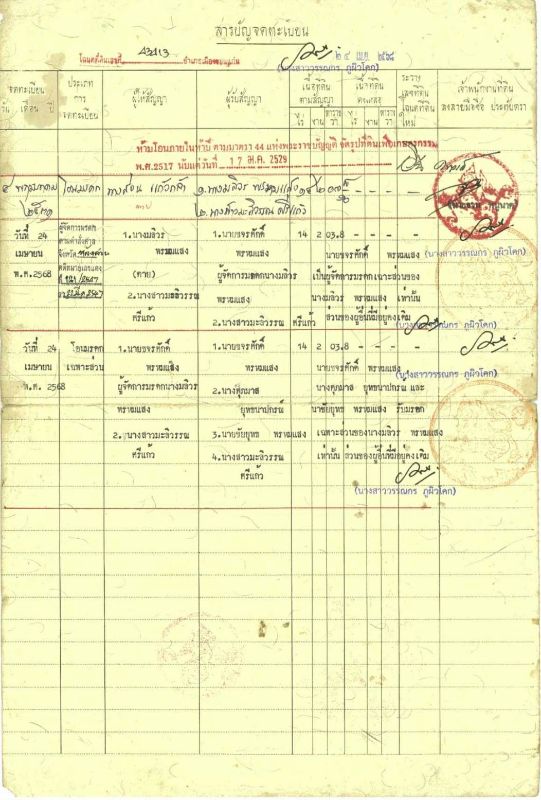 สารบัญจดทะเบียน
โฉนดที่ดินเลขที่ 43113 อำเภอเมืองขอนแก่น
(นางสาววรรณกร ภูผิวโคก)
จดทะเบียน วัน เดือน ปี
ประเภทการจดทะเบียน
ผู้ให้สัญญา
ผู้รับสัญญา
เนื้อที่ดินตามสัญญา
ไร่ งาน ตารางวา
เนื้อที่ดินคงเหลือ
ไร่ งาน ตารางวา
ระวาง เลขที่ดิน โฉนดที่ดินใหม่
เจ้าพนักงานที่ดิน ลงลายมือชื่อ ประทับตรา
ห้ามโอนภายในห้าปี ตามมาตรา 44 แห่งพระราชบัญญัติ จัดรูปที่ดินเพื่อเกษตรกรรม
พ.ศ.2517 นับแต่วันที่ 17 ม.ค. 2529
โอนมรดก
แก้วกล้า
วันที่ 24 เมษายน พ.ศ.2568
ผู้จัดการมรดก
ตามคำสั่งศาล
1.นางมลิวร พรหมแสง
(ตาย)
2.นางสาวมะลิวรรณ ศรีแก้ว
1.นายขจรศักดิ์ พรหมแสง
ผู้จัดการมรดกนางมลิวร
พรหมแสง
2.นางสาวมะลิวรรณ ศรีแก้ว
14 2 03.8 - - - -
นายขจรศักดิ์ พรหมแสง
เป็นผู้จัดการมรดกเฉพาะส่วนของ
นางมลิวร พรหมแสง เท่านั้น
ส่วนของผู้อื่นที่มีอยู่คงเดิม
(นางสาววรรณกร ภูผิวโคก)
(นางสาววรรณกร ภูผิวโคก)
วันที่ 24 เมษายน พ.ศ. 2568
โอนมรดก
เฉพาะส่วน
1.นายขจรศักดิ์ พรหมแสง
ผู้จัดการมรดกนางมลิวร
พรหมแสง
2.นางสาวมะลิวรรณ
ศรีแก้ว
1.นายขจรศักดิ์
พรหมแสง
2.นางศุภมาส
ยุทธนาปกรณ์
3.นายชัยยุทธ พรหมแสง
4.นางสาวมะลิวรรณ
ศรีแก้ว
14 2 03.8 - - - -
นายขจรศักดิ์ พรหมแสง
นางศุภมาส ยุทธนาปกรณ์ และ
นายชัยยุทธ พรหมแสง รับมรดก
เฉพาะส่วนของนางมลิวร พรหมแสง
เท่านั้น ส่วนของผู้อื่นที่มีอยู่คงเดิม
(นางสาววรรณกร ภูผิวโคก)
(นางสาววรรณกร ภูผิวโคก)